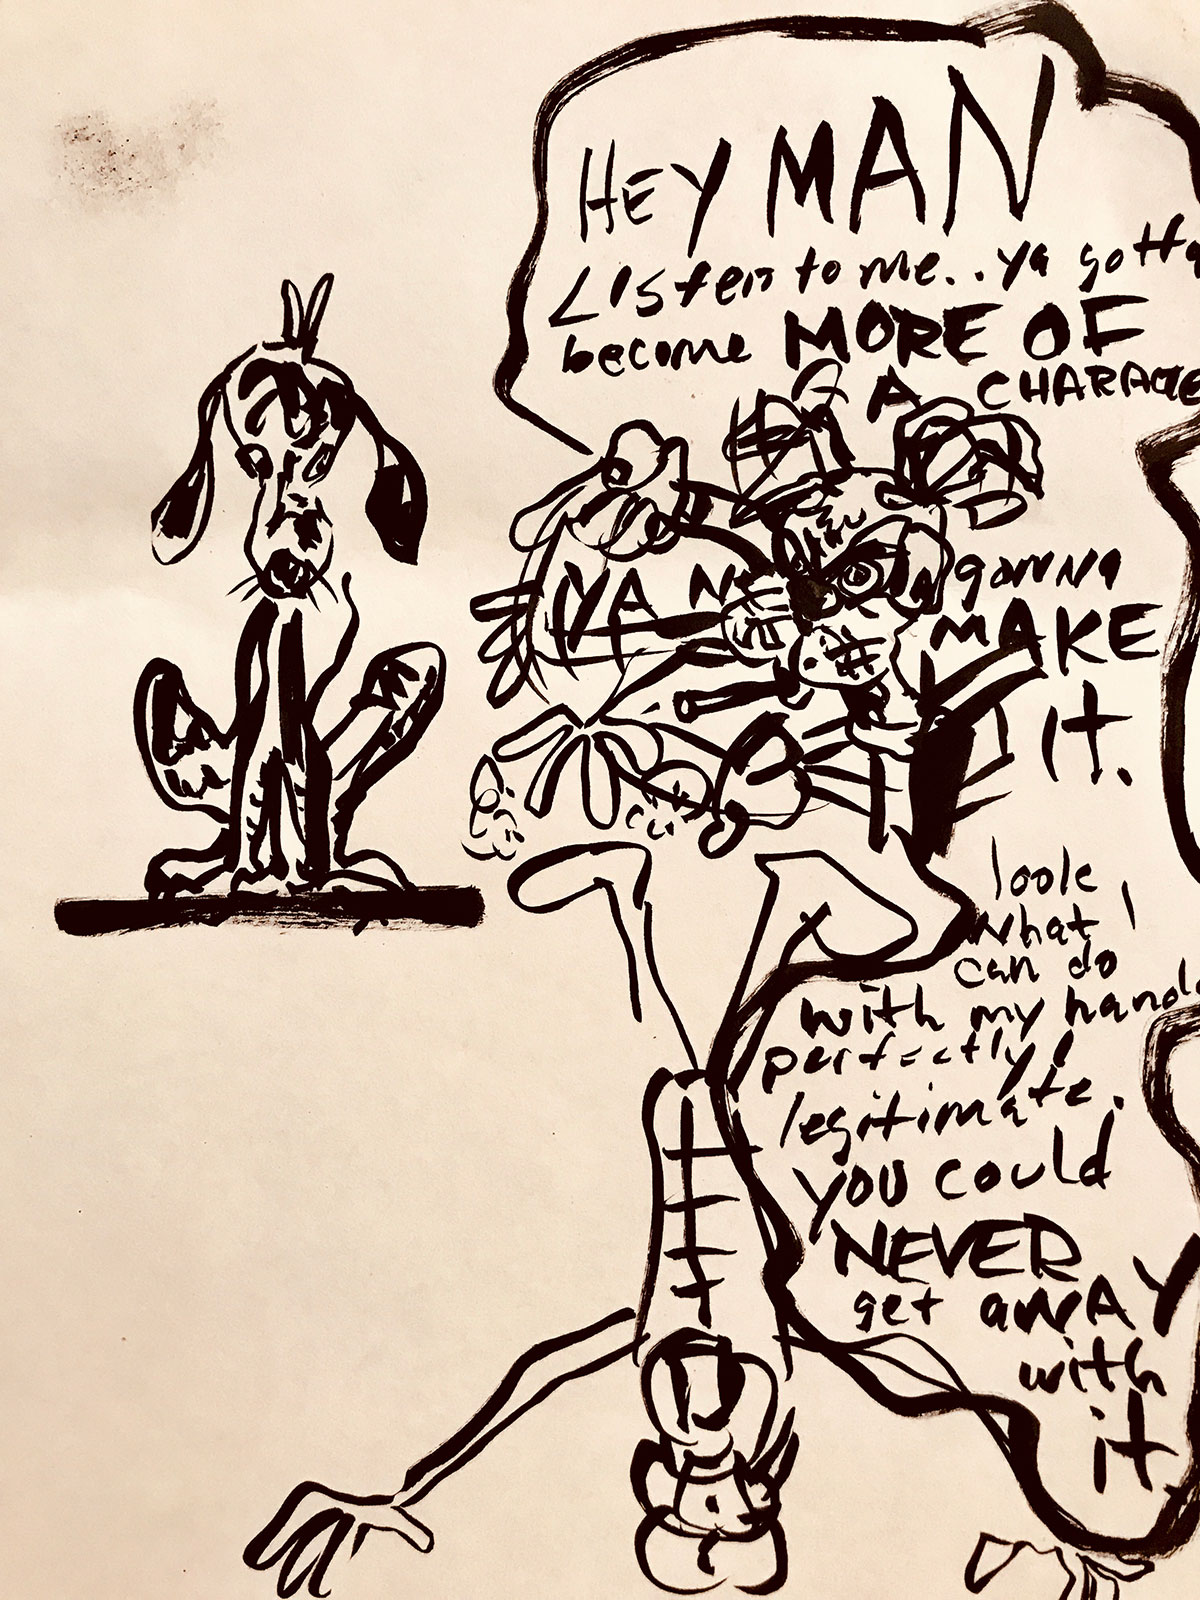 HEY MAN
Listen to me.. ya gotta
become MORE OF
A CHARACTE
YA NE gonna
MAKE
it.
look
what I
can do
with my hands
perfectly
legitimate.
YOU could
NEVER
get aWAY
with
it